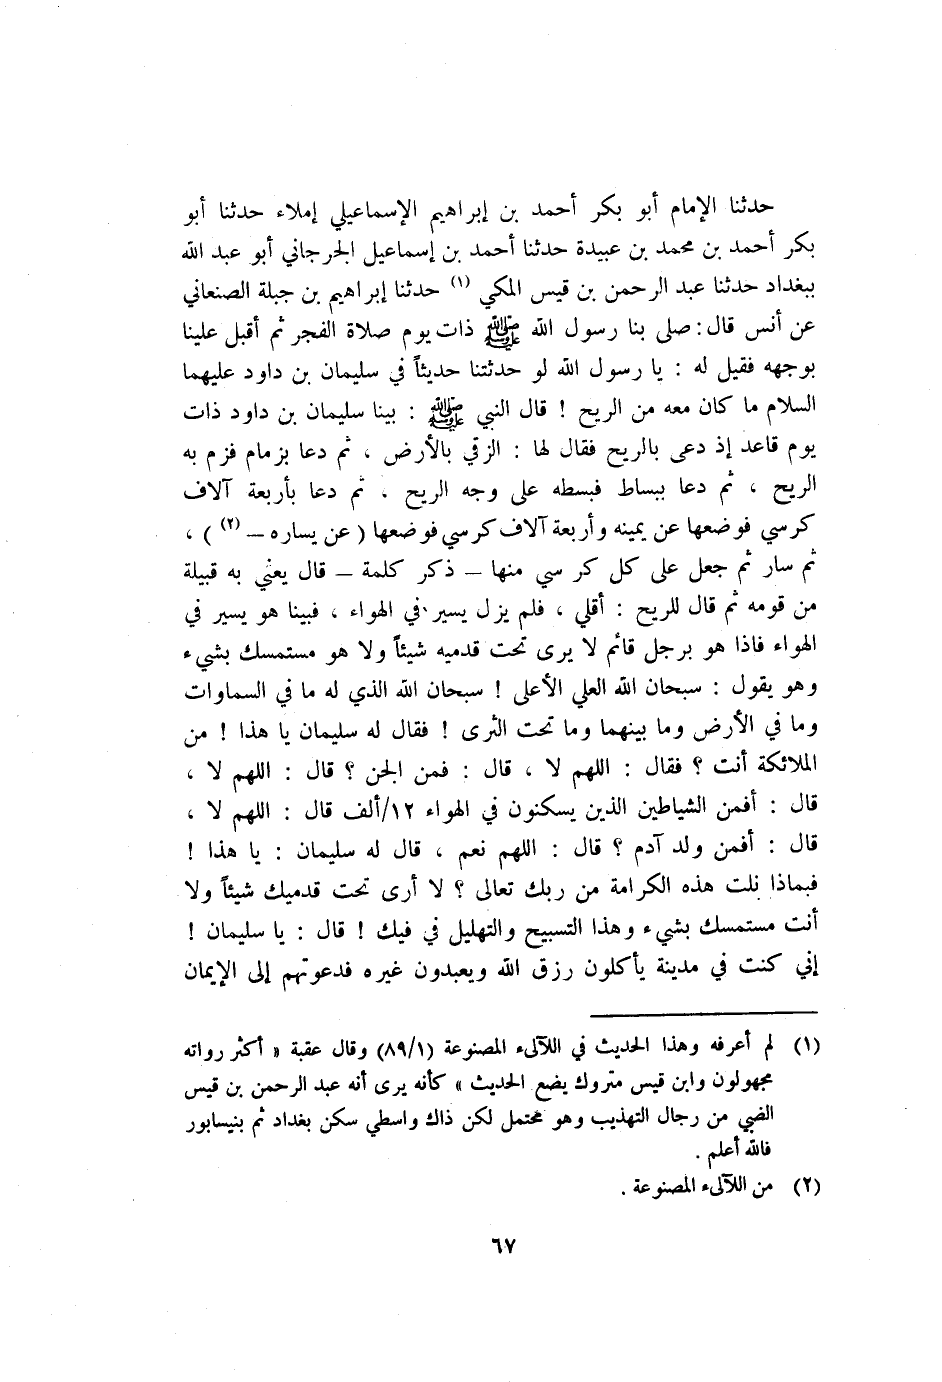 حدثنا الإمام أبو بكر أحمد بن إبراهيم الإسماعيلي إملاء حدثنا أبو
بكر أحمد بن محمد بن عبيدة حدثنا أحمد بن إسماعيل الجرجاني أبو عبد الله
ببغداد حدثنا عبد الرحمن بن قيس المكي (١) حدثنا إبراهيم بن جبلة الصنعاني
عن أنس قال : صلى بنا رسول الله ﷺ ذات يوم صلاة الفجر ثم أقبل علينا
بوجهه فقيل له : يا رسول الله لو حدثتنا حديثاً في سليمان بن داود عليهما
السلام ما كان معه من الريح ! قال النبي ﷺ : بينا سليمان بن داود ذات
يوم قاعد إذ دعى بالريح فقال لها : الزقي بالأرض ، ثم دعا بزمام فزم به
الريح ، ثم دعا ببساط فبسطه على وجه الريح . ثم دعا بأربعة آلاف
كرسي فوضعها عن يمينه وأربعة آلاف كرسي فوضعها ( عن يساره – (٢) ) ،
ثم سار ثم جعل على كل كرسي منها – ذكر كلمة – قال يعني به قبيلة
من قومه ثم قال للريح : أقلي ، فلم يزل يسير في الهواء ، فبينا هو يسير في
الهواء فاذا هو برجل قائم لا يرى تحت قدميه شيئاً ولا هو مستمسك بشيء
وهو يقول : سبحان الله العلي الأعلى ! سبحان الله الذي له ما في السماوات
وما في الأرض وما بينهما وما تحت الثرى ! فقال له سليمان يا هذا ! من
الملائكة أنت ؟ فقال : اللهم لا ، قال : فمن الجن ؟ قال : اللهم لا ،
قال : أفمن الشياطين الذين يسكنون في الهواء ١٢/ألف قال : اللهم لا ،
قال : أفمن ولد آدم ؟ قال : اللهم نعم ، قال له سليمان : يا هذا !
فبماذا نلت هذه الكرامة من ربك تعالى ؟ لا أرى تحت قدميك شيئاً ولا
أنت مستمسك بشيء وهذا التسبيح والتهليل في فيك ! قال : يا سليمان !
إني كنت في مدينة يأكلون رزق الله ويعبدون غيره فدعوتهم إلى الإيمان
(١) لم أعرفه وهذا الحديث في اللآلىء المصنوعة (٨٩/١) وقال عقبة « أكثر رواته
مجهولون وابن قيس متروك يضع الحديث » كأنه يرى أنه عبد الرحمن بن قيس
الضبي من رجال التهذيب وهو محتمل لكن ذاك واسطي سكن بغداد ثم بنيسابور
فالله أعلم .
(٢) من اللآلىء المصنوعة .
٦٧